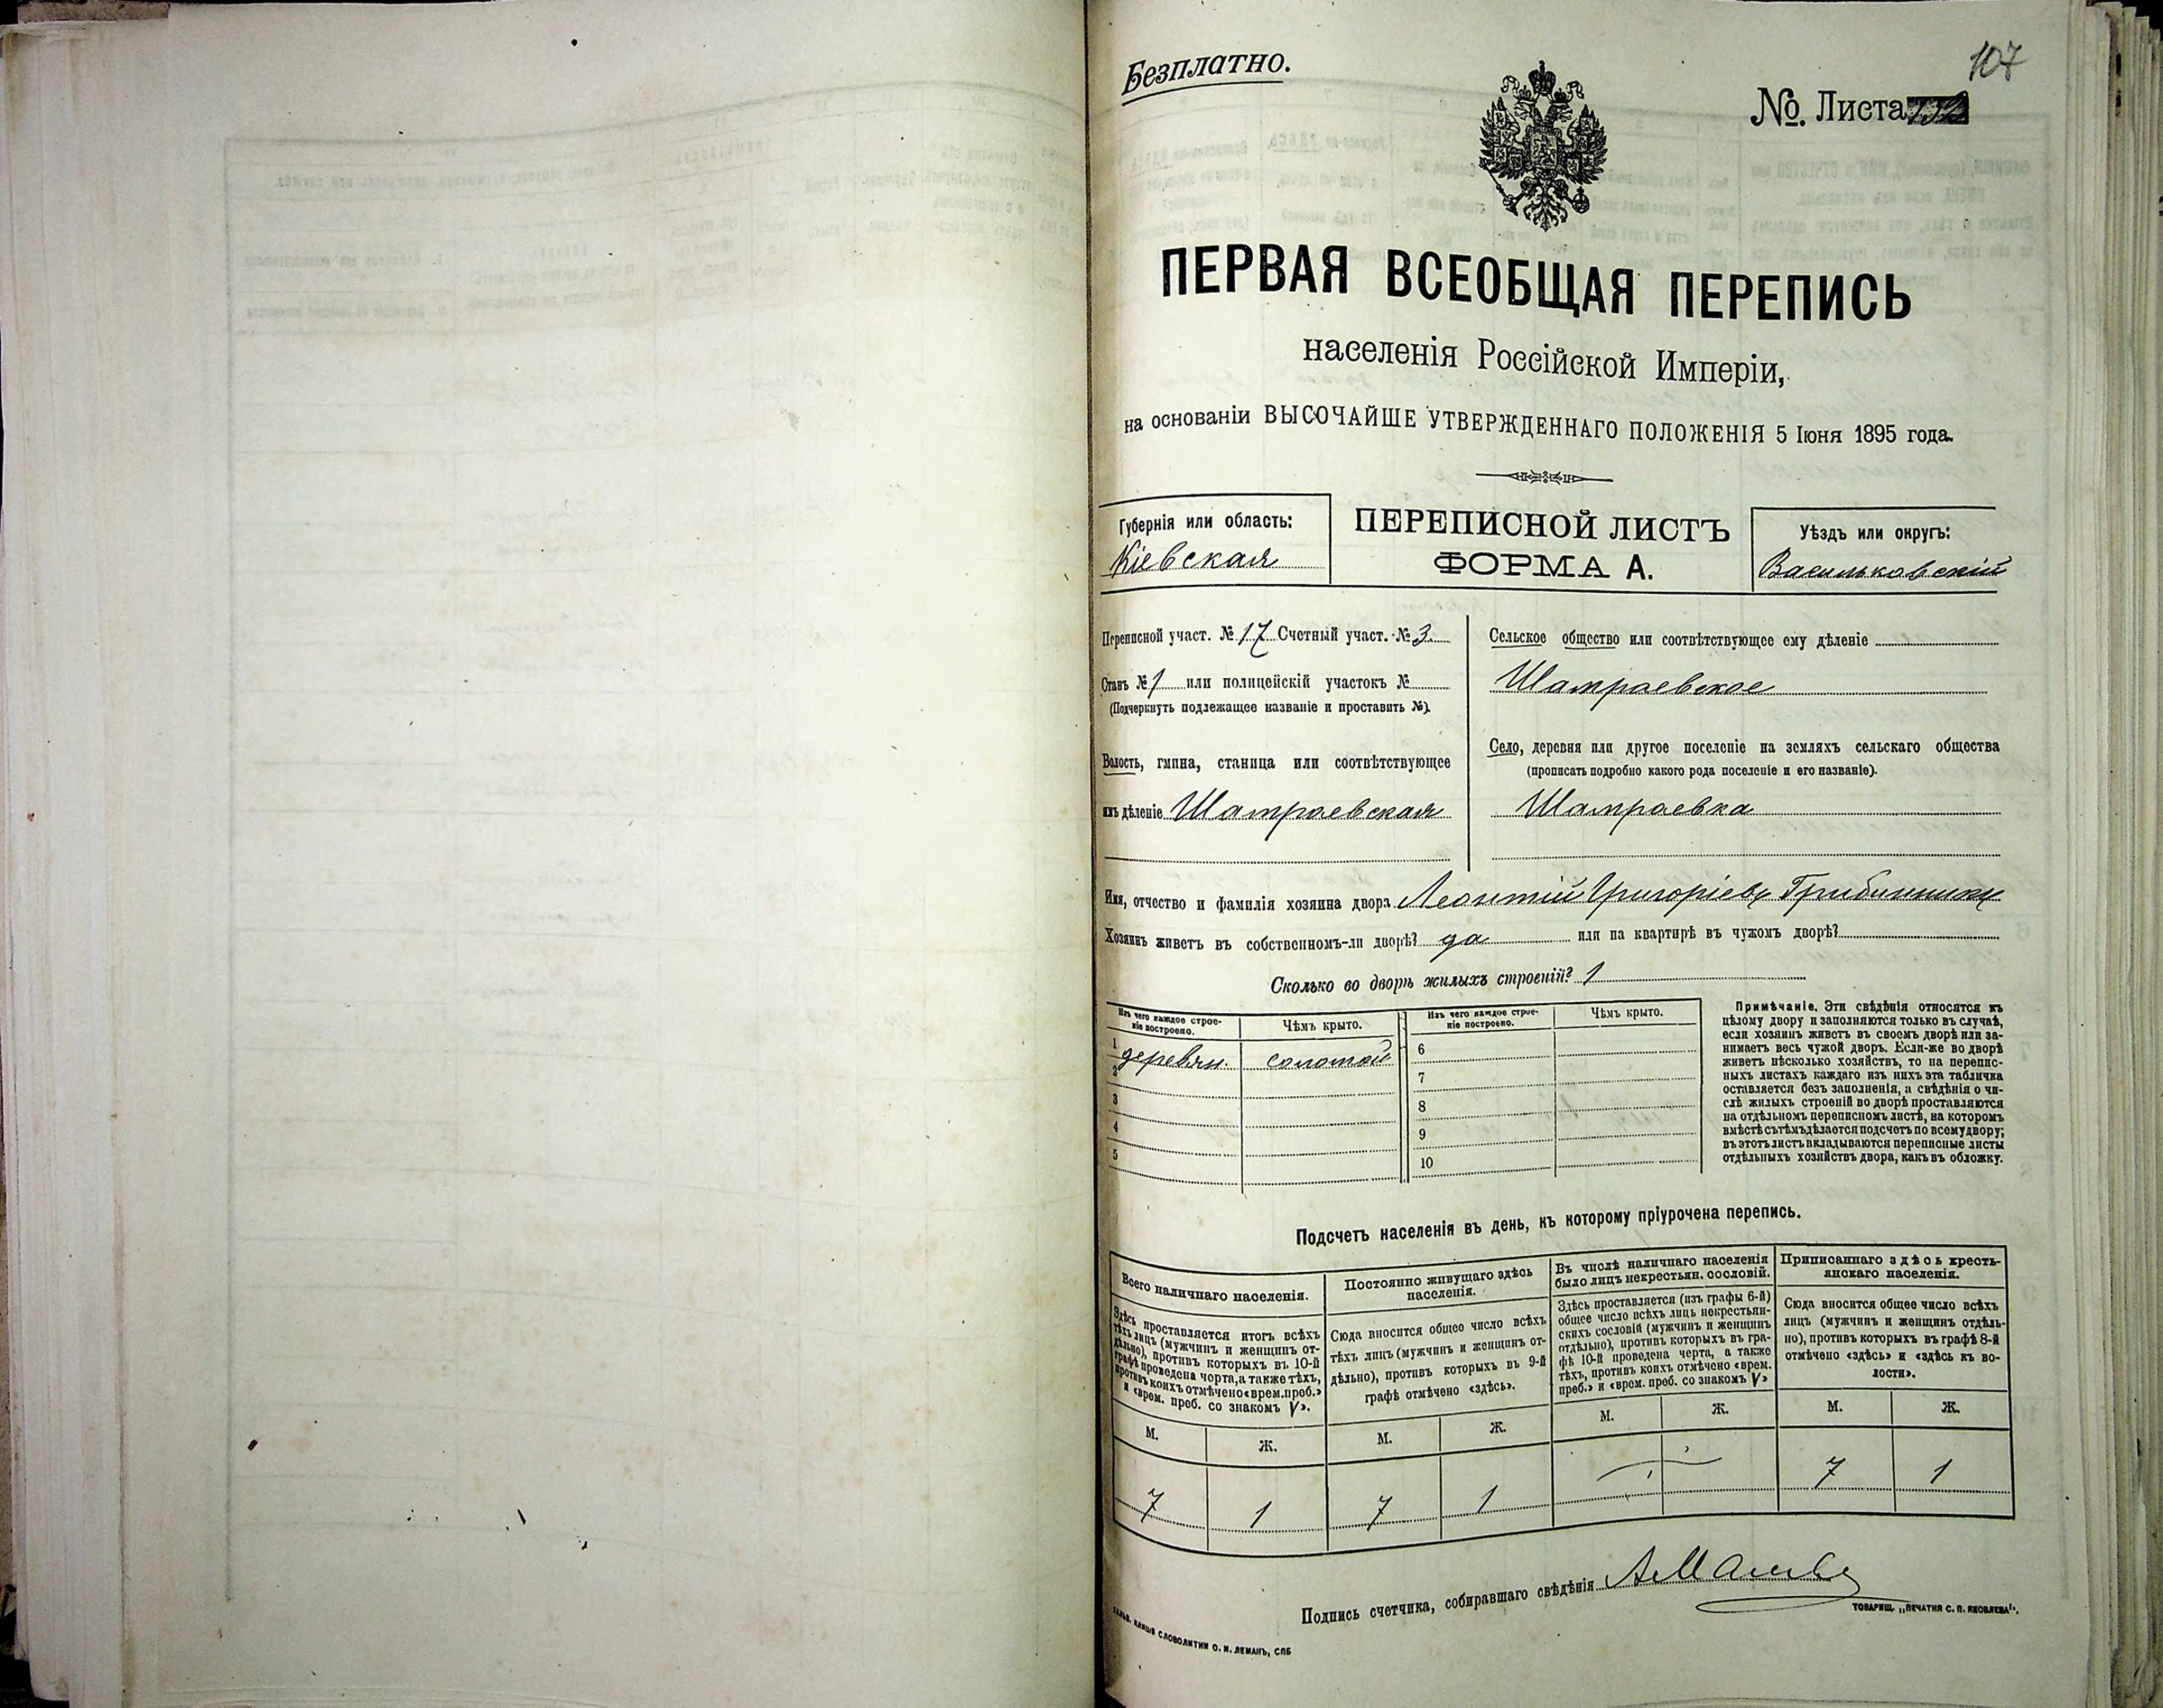 Безплатно.
107
№. Листа
ПЕРВАЯ ВСЕОБЩАЯ ПЕРЕПИСЬ
населенія Россійской Имперіи,
на основаніи ВЫСОЧАЙШЕ УТВЕРЖДЕННАГО ПОЛОЖЕНІЯ 5 Іюня 1895 года.
Губернія или область:
Кіевская
ПЕРЕПИСНОЙ ЛИСТЪ
ФОРМА А.
Уѣздъ или округъ:
Васильковскій
Переписной участ. № 17 Счетный участ. № 3
Станъ № 1 или полицейскій участокъ №
(Подчеркнуть подлежащее названіе и проставить №).
Волость, гмина, станица или соотвѣтствующее
имъ дѣленіе Шамраевская
Сельское общество или соотвѣтствующее ему дѣленіе
Шамраевское
Село, деревня или другое поселеніе на земляхъ сельскаго общества
(прописать подробно какого рода поселеніе и его названіе).
Шамраевка
Имя, отчество и фамилія хозяина двора Леонтій Григоріевъ
Хозяинъ живетъ въ собственномъ-ли дворѣ? да или на квартирѣ въ чужомъ дворѣ?
Сколько во дворѣ жилыхъ строеній? 1
Изъ чего каждое строе-
ніе построено.
Чѣмъ крыто.
1 деревян. соломой
2
3
4
5
Изъ чего каждое строе-
ніе построено.
Чѣмъ крыто.
6
7
8
9
10
Примѣчаніе. Эти свѣдѣнія относятся къ
цѣлому двору и заполняются только въ случаѣ,
если хозяинъ живетъ въ своемъ дворѣ или за-
нимаетъ весь чужой дворъ. Если-же во дворѣ
живетъ нѣсколько хозяйствъ, то на перепис-
ныхъ листахъ каждаго изъ нихъ эта табличка
оставляется безъ заполненія, а свѣдѣнія о чи-
слѣ жилыхъ строеній во дворѣ проставляются
на отдѣльномъ переписномъ листѣ, на которомъ
вмѣстѣ съ тѣмъ дѣлается подсчетъ по всему двору;
въ этотъ листъ вкладываются переписные листы
отдѣльныхъ хозяйствъ двора, какъ въ обложку.
Подсчетъ населенія въ день, къ которому пріурочена перепись.
Всего наличнаго населенія.
Здѣсь проставляется итогъ всѣхъ
тѣхъ лицъ (мужчинъ и женщинъ от-
дѣльно), противъ которыхъ въ 10-й
графѣ проведена черта, а также тѣхъ,
противъ коихъ отмѣчено «врем. преб.»
и «врем. преб. со знакомъ V».
М. Ж.
7 1
Постоянно живущаго здѣсь
населенія.
Сюда вносится общее число всѣхъ
тѣхъ лицъ (мужчинъ и женщинъ от-
дѣльно), противъ которыхъ въ 9-й
графѣ отмѣчено «здѣсь».
М. Ж.
7 1
Въ числѣ наличнаго населенія
было лицъ некрестьян. сословій.
Здѣсь проставляется (изъ графы 6-й)
общее число всѣхъ лицъ некрестьян-
скихъ сословій (мужчинъ и женщинъ
отдѣльно), противъ которыхъ въ гра-
фѣ 10-й проведена черта, а также
тѣхъ, противъ коихъ отмѣчено «врем.
преб.» и «врем. преб. со знакомъ V»
М. Ж.
Приписаннаго здѣсь кресть-
янскаго населенія.
Сюда вносится общее число всѣхъ
лицъ (мужчинъ и женщинъ отдѣль-
но), противъ которыхъ въ графѣ 8-й
отмѣчено «здѣсь» и «здѣсь къ во-
лости».
М. Ж.
7 1
Подпись счетчика, собиравшаго свѣдѣнія
КЛИШЕ СЛОВОЛИТНИ О. И. ЛЕМАНЪ, СПБ
ТОВАРИЩ. „ПЕЧАТНЯ С. П. ЯКОВЛЕВА".